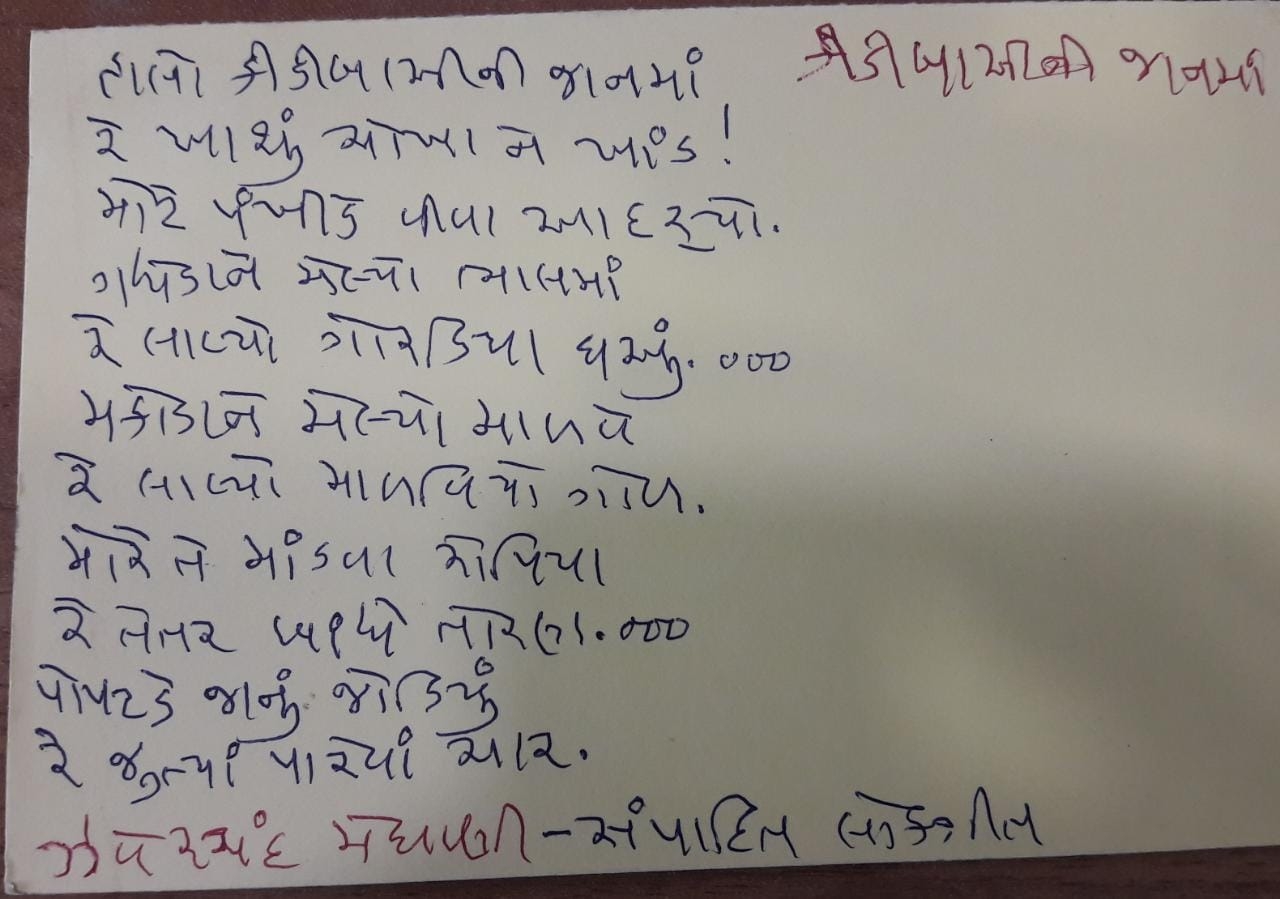 કીડીબાઈની જાનમાં
હાલો કીડીબાઈની જાનમાં
રે ખાશું ચોખા ને ખાંડ!
મોરે પંખીડે પીવા આદર્યો.
ગધેડાને મેલ્યો ભાલમાં
રે લાવ્યો ગોરડિયા ઘઉં. ૦૦૦
મકોડાને મેલ્યો માળવે
રે લાવ્યો માળવિયો ગોળ.
મોરે તે માંડવા રોપિયા
રે તેતર બાંધે તોરણ. ૦૦૦
પોપટડે જાનું જોડિયું
રે જુત્યાં પારેવાં ચાર.
ઝવેરચંદ મેઘાણી - સંપાદિત લોકગીત